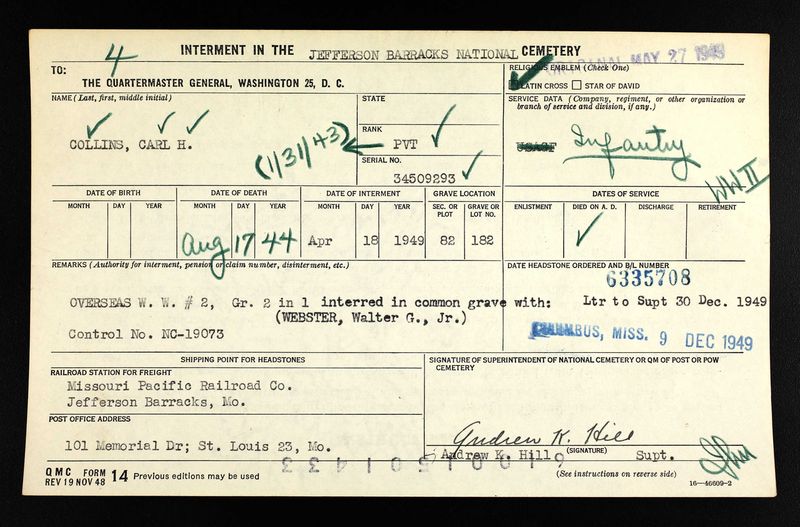 4
INTERMENT IN THE JEFFERSON BARRACKS NATIONAL CEMETERY
ORIGINAL MAY 27 1949
TO:
THE QUARTERMASTER GENERAL, WASHINGTON 25, D. C.
RELIGIOUS EMBLEM (Check One)
LATIN CROSS STAR OF DAVID
NAME (Last, first, middle initial)
COLLINS, CARL H.
STATE
RANK
PVT
(1/31/43)
SERIAL NO.
34509293
SERVICE DATA (Company, regiment, or other organization or
branch of service and division, if any.)
Infantry
WW II
DATE OF BIRTH DATE OF DEATH DATE OF INTERMENT GRAVE LOCATION DATES OF SERVICE
MONTH DAY YEAR MONTH DAY YEAR MONTH DAY YEAR SEC. OR PLOT GRAVE OR LOT NO. ENLISTMENT DIED ON A. D. DISCHARGE RETIREMENT
Aug 17 44 Apr 18 1949 82 182
REMARKS (Authority for interment, pension or claim number, disinterment, etc.)
OVERSEAS W. W. # 2, Gr. 2 in 1 interred in common grave with:
(WEBSTER, Walter G., Jr.)
Control No. NC-19073
DATE HEADSTONE ORDERED AND B/L NUMBER
6335708
Ltr to Supt 30 Dec. 1949
COLUMBUS, MISS. 9 DEC 1949
SHIPPING POINT FOR HEADSTONES
RAILROAD STATION FOR FREIGHT
Missouri Pacific Railroad Co.
Jefferson Barracks, Mo.
POST OFFICE ADDRESS
101 Memorial Dr; St. Louis 23, Mo.
SIGNATURE OF SUPERINTENDENT OF NATIONAL CEMETERY OR QM OF POST OR POW
CEMETERY
Andrew K. Hill
Andrew K. Hill (SIGNATURE) Supt.
QMC FORM 14 Previous editions may be used
REV 19 NOV 48
(See instructions on reverse side)
16—46609-2